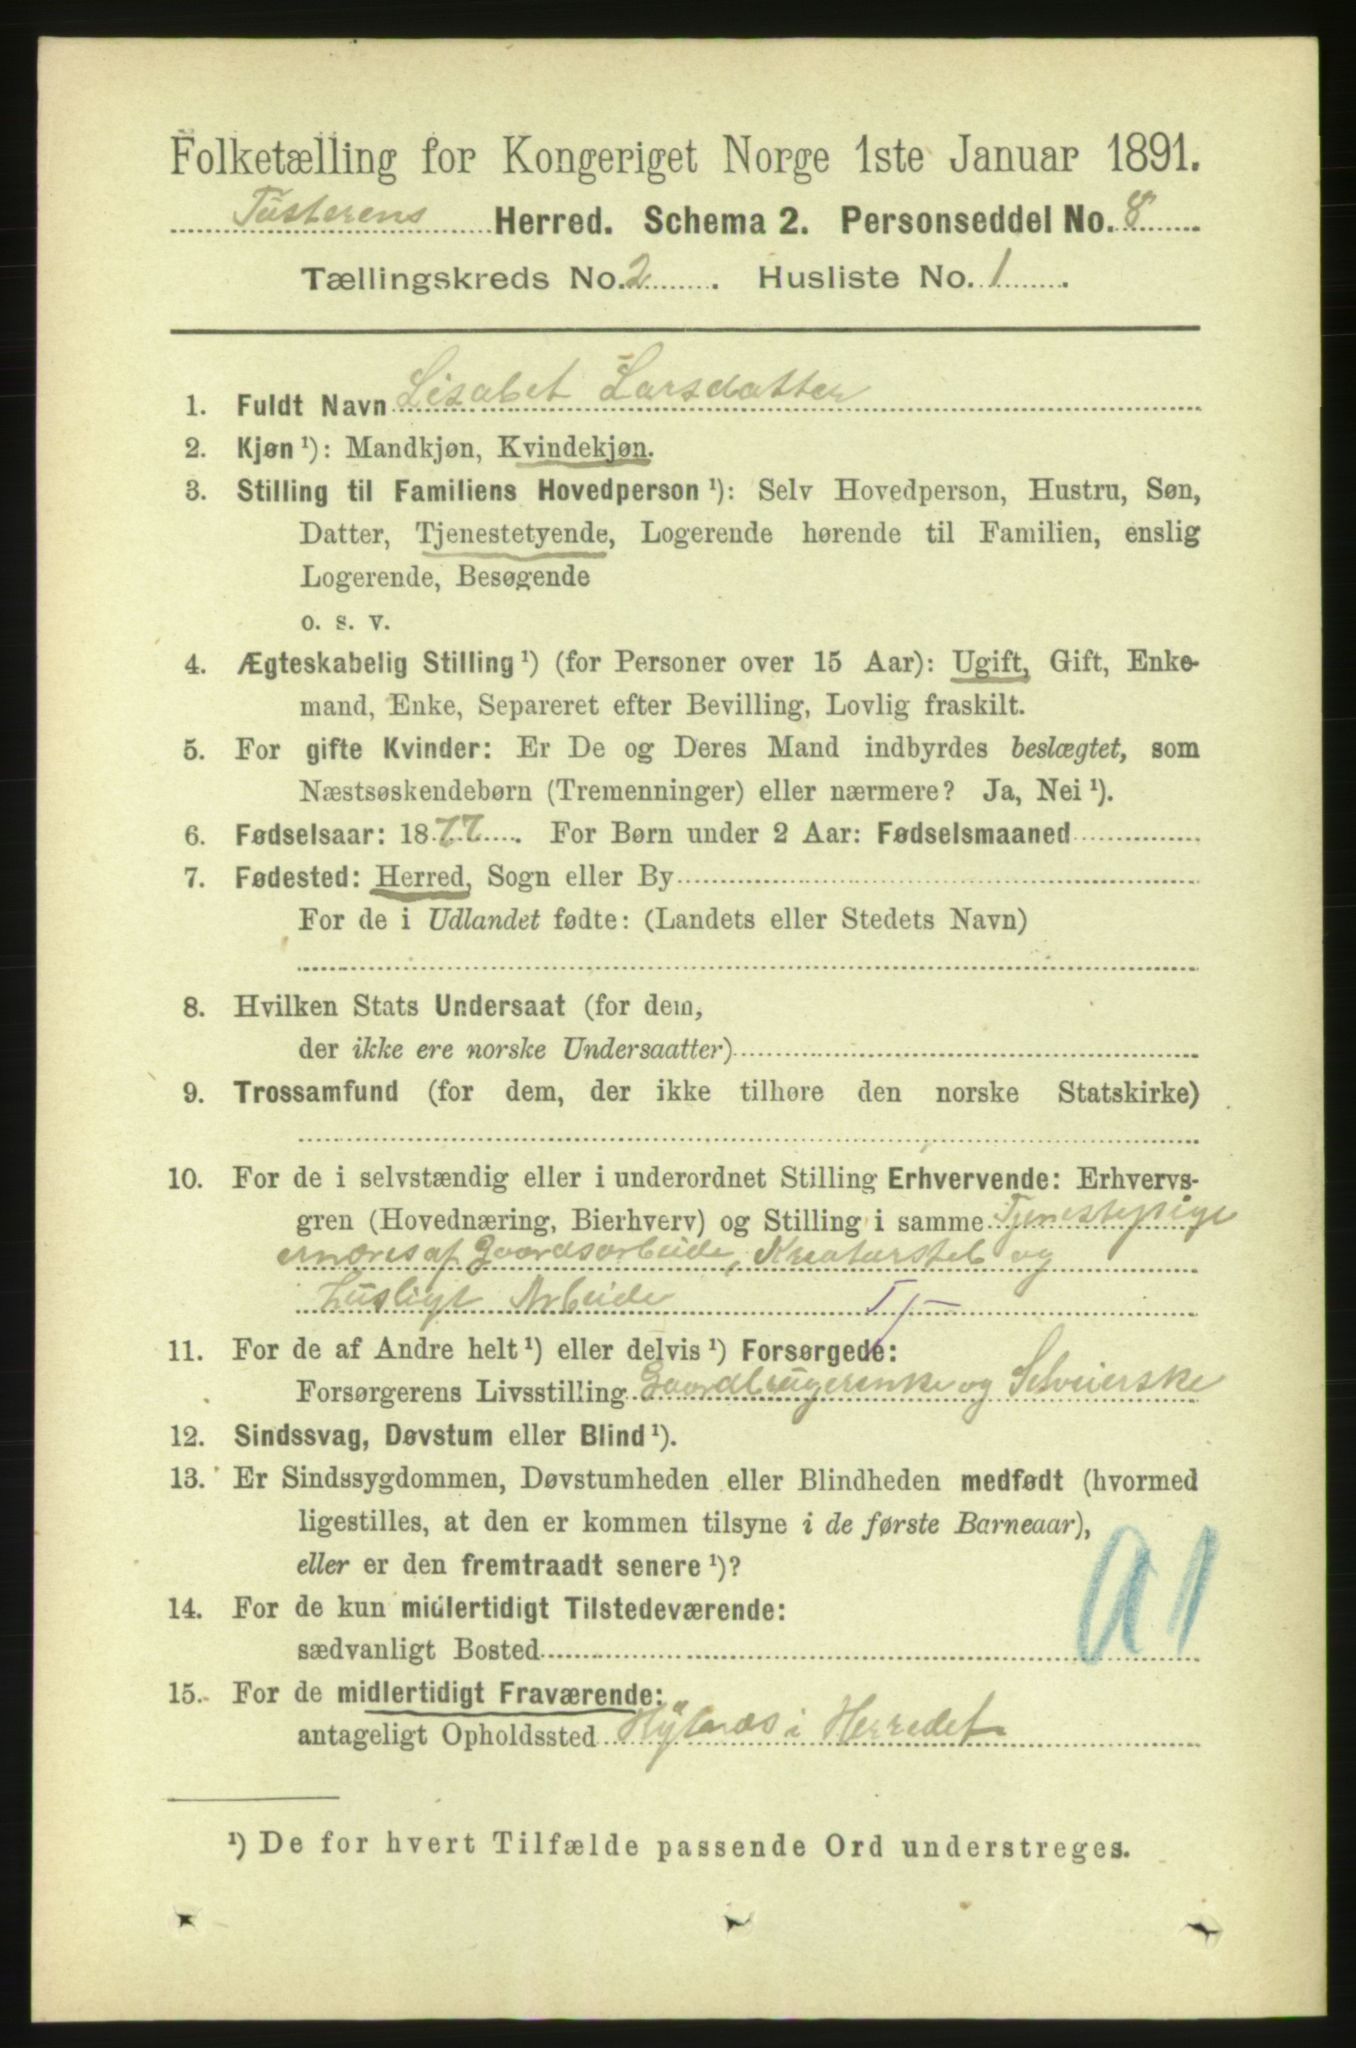 Folketælling for Kongeriget Norge 1ste Januar 1891.
Tusterens Herred. Schema 2. Personseddel No. 8
Tællingskreds No. 2. Husliste No. 1.
1. Fuldt Navn Lisabet Larsdatter
2. Kjøn ¹): Mandkjøn, Kvindekjøn.
3. Stilling til Familiens Hovedperson ¹): Selv Hovedperson, Hustru, Søn,
Datter, Tjenestetyende, Logerende hørende til Familien, enslig
Logerende, Besøgende
o. s. v.
4. Ægteskabelig Stilling ¹) (for Personer over 15 Aar): Ugift, Gift, Enke-
mand, Enke, Separeret efter Bevilling, Lovlig fraskilt.
5. For gifte Kvinder: Er De og Deres Mand indbyrdes beslægtet, som
Næstsøskendebørn (Tremenninger) eller nærmere? Ja, Nei ¹).
6. Fødselsaar: 1877. For Børn under 2 Aar: Fødselsmaaned
7. Fødested: Herred, Sogn eller By
For de i Udlandet fødte: (Landets eller Stedets Navn)
8. Hvilken Stats Undersaat (for dem,
der ikke ere norske Undersaatter)
9. Trossamfund (for dem, der ikke tilhøre den norske Statskirke)
10. For de i selvstændig eller i underordnet Stilling Erhvervende: Erhvervs-
gren (Hovednæring, Bierhverv) og Stilling i samme Tjenestepige
ernæres af Gaardsarbeide, Kreaturstel og
Husligt Arbeide
11. For de af Andre helt ¹) eller delvis ¹) Forsørgede:
Forsørgerens Livsstilling Gaardbrugerenke og Selveierske
12. Sindssvag, Døvstum eller Blind ¹).
13. Er Sindssygdommen, Døvstumheden eller Blindheden medfødt (hvormed
ligestilles, at den er kommen tilsyne i de første Barneaar),
eller er den fremtraadt senere ¹)?
14. For de kun midlertidigt Tilstedeværende:
sædvanligt Bosted
a1
15. For de midlertidigt Fraværende:
antageligt Opholdssted i Herredet
¹) De for hvert Tilfælde passende Ord understreges.